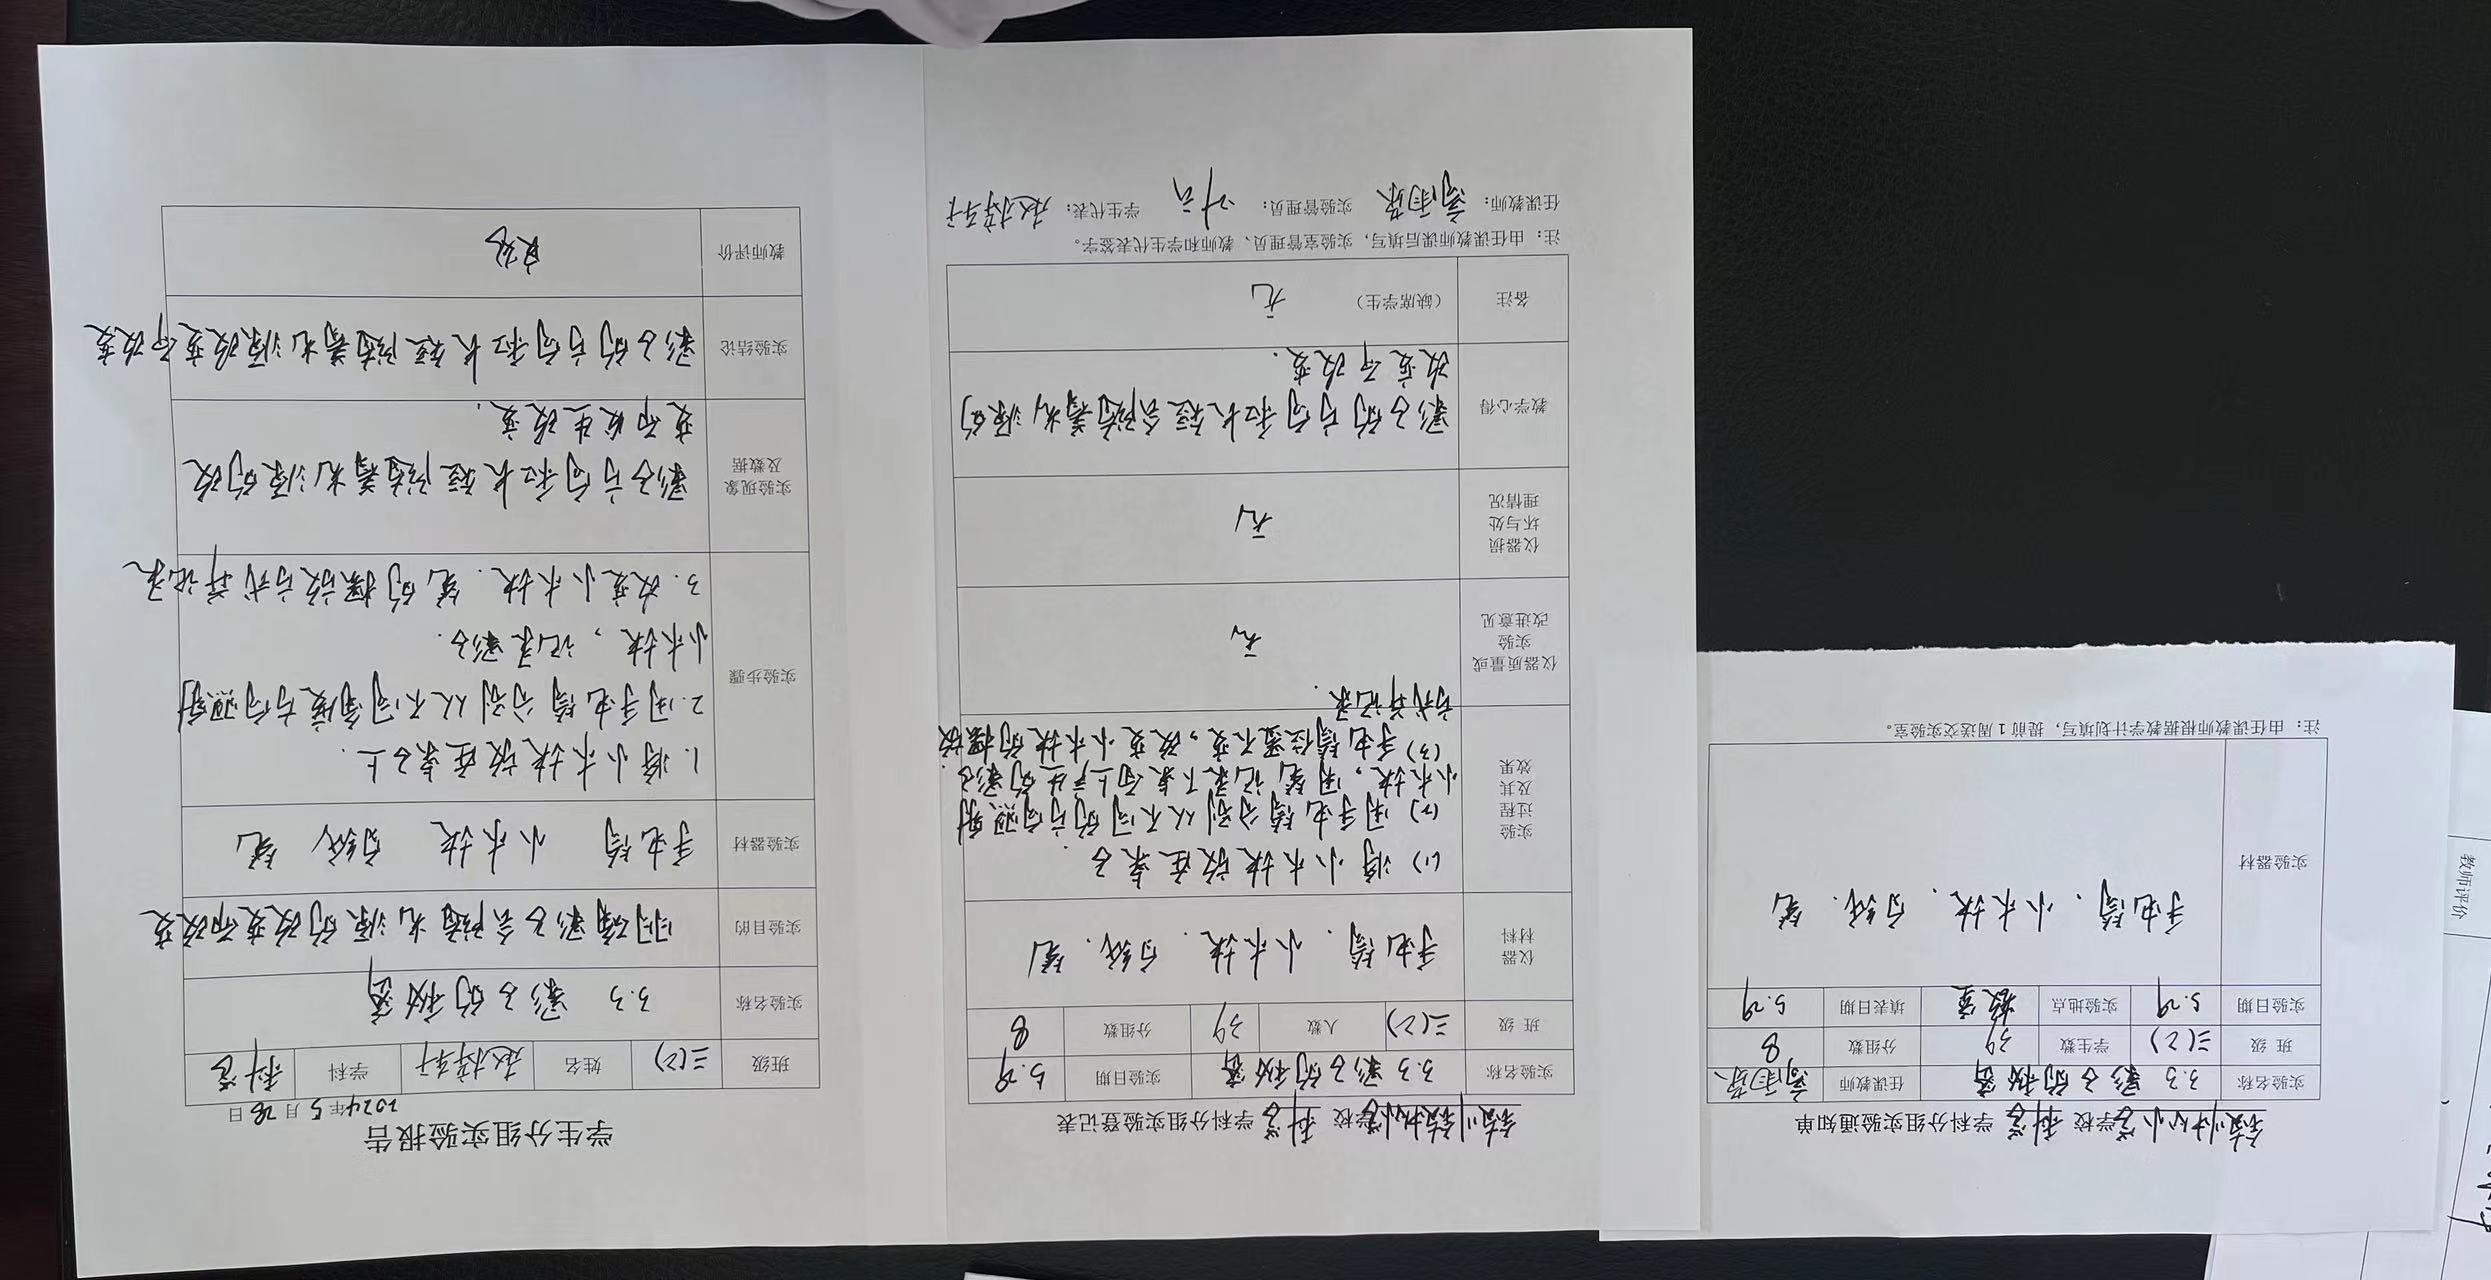 学校 科学 学科分组实验通知单
实验名称 3.3 影子的秘密 任课教师
班 级 三(2) 学生数 39 分组数 8
实验日期 5.29 实验地点 教室 填表日期 5.29
实验器材 手电筒、小木块、白纸、笔
注：由任课教师根据教学计划填写，提前1周送交实验室。
学校 科学 学科分组实验登记表
实验名称 3.3 影子的秘密 实验日期 5.29
班 级 三(2) 人数 39 分组数 8
仪器材料 手电筒、小木块、白纸、笔
实验过程及其效果
(1) 将小木块放在桌子
(2) 用手电筒分别从不同的方向照射
小木块，用笔记录下桌面上产生的影子.
(3) 手电筒位置不变，改变，小木块的摆放
方式并记录.
仪器质量或实验改进意见 无
仪器损坏与处理情况 无
教学心得 影子的方向和长短会随着光源的
改变而改变.
备注 (缺席学生) 无
注：由任课教师课后填写，实验室管理员、教师和学生代表签字。
任课教师： 实验管理员： 学生代表：赵梓轩
学生分组实验报告
2024年5月28日
班级 三(2) 姓名 赵梓轩 学科 科学
实验名称 3.3 影子的秘密
实验目的 明确影子会随光源的改变而改变
实验器材 手电筒 小木块 白纸 笔
实验步骤
1. 将小木块放在桌子上.
2. 用手电筒分别从不同角度方向照射
小木块，记录影子.
3. 改变小木块、笔的摆放方式并记录
实验现象及数据 影子方向和长短随着光源的改
变而发生改变.
实验结论 影子的方向和长短随着光源改变而改变
教师评价 良好
教师评价